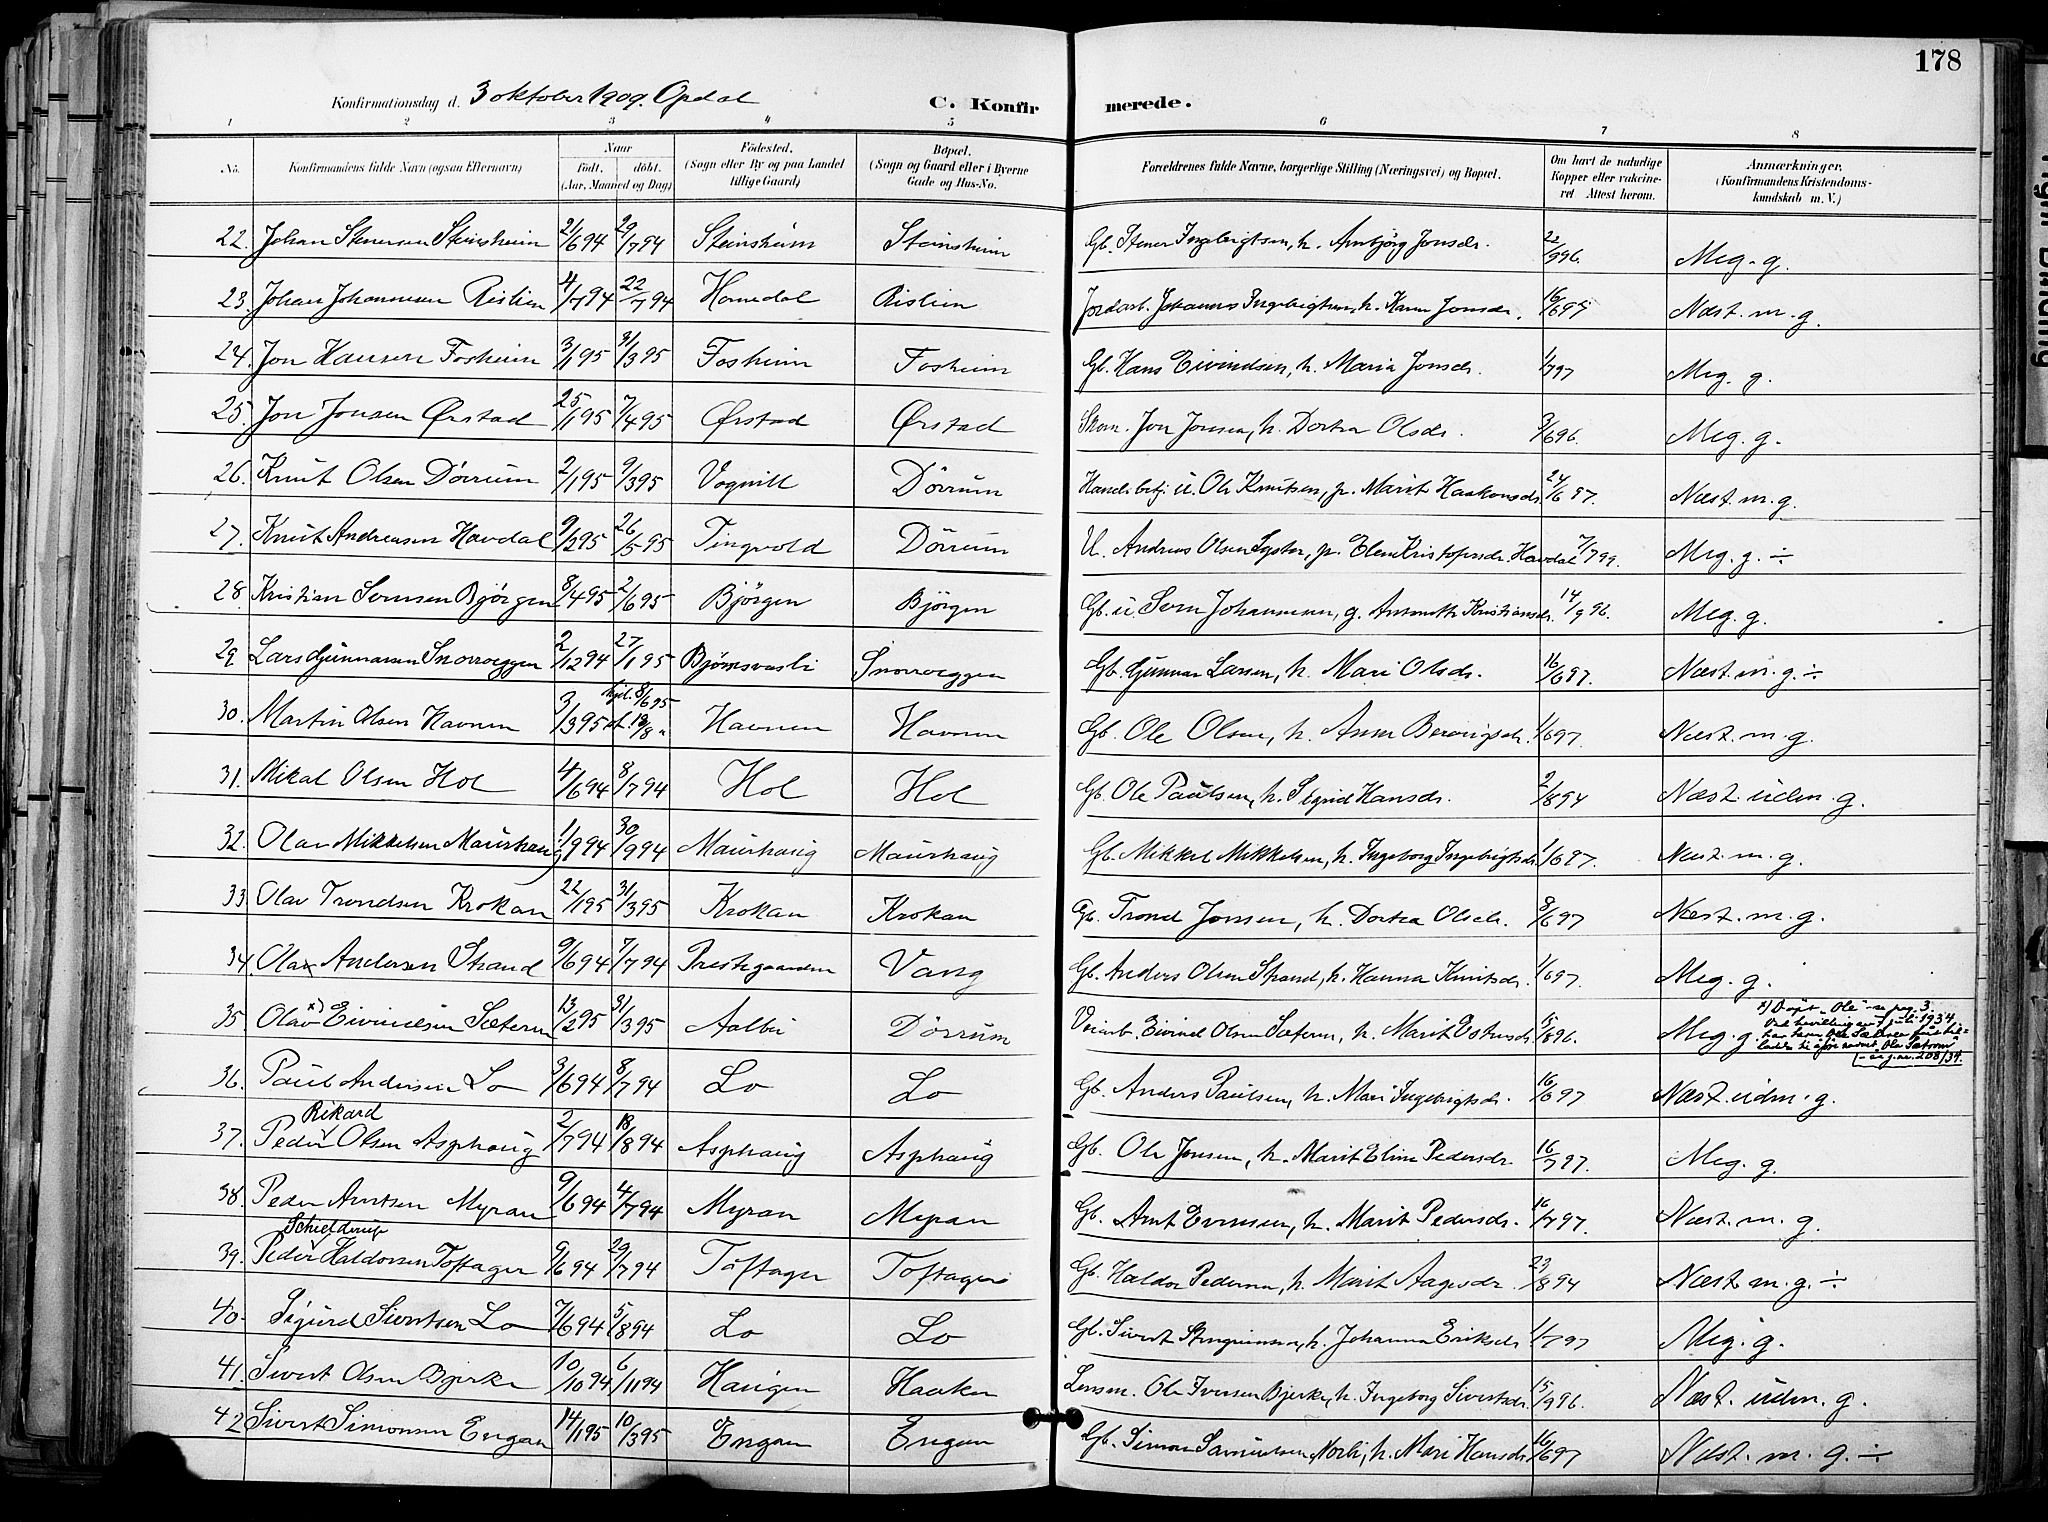 178
Konfirmationsdag d. 3 oktober 1909. Opdal C. Konfirmerede.
1 2 3 4 5 6 7 8
No. Konfirmandens fulde Navn (ogsaa Efternavn) Naar født. døbt. (Aar, Maaned og Dag) Fødested. (Sogn eller By og paa Landet tillige Gaard) Bopæl. (Sogn og Gaard eller i Byerne Gade og Hus-No. Forældrenes fulde Navne, borgerlige Stilling (Næringsvei) og Bopæl. Om havt de naturlige Kopper eller vakcineret Attest herom. Anmærkninger, (Konfirmandens Kristendomskundskab m. V.)
22. Johan Stenersen Steinsheim 2/6 94 29/7 94 Steinsheim Steinsheim Gb. Stener Ingebrigtsen, h. Ambjørg Jonsdr. 22/9 96. Meg. g.
23. Johan Johannesen Rislien 4/7 94 22/7 94 Hornedal Rislien Jordarb. Johannes Ingebrigtsen, h. Karen Jonsdr. 16/6 97 Næst. m. g.
24. Jon Hansen Fosheim 3/1 95 31/3 95 Fosheim Fosheim Gb. Hans Eivindsen, h. Maria Jonsdr. 1/7 97 Meg. g.
25. Jon Jonsen Ørstad 25/1 95 7/4 95 Ørstad Ørstad Skom. Jon Jonsen, h. Dortea Olsdr. 3/6 96. Meg. g.
26. Knut Olsen Dörrum 2/1 95 9/3 95 Vognill Dörrum Handelsbetj. u. Ole Knutsen, p. Marit Haakonsdr. 24/6 97. Næst. m. g.
27. Knut Andreasen Havdal 9/2 95 26/5 95 Tingvold Dörrum U. Andreas Olsen, p. Elen Kristofersdr. Havdal 7/7 99. Meg. g. ÷
28. Kristian Svensen Bjørgen 8/4 95 2/6 95 Bjørgen Bjørgen Gb. u. Sven Johannesen, g. Kristiansdr. 14/9 96. Meg. g.
29 Lars Gunnarsen Snoroeggen 2/12 94 27/1 95 Bjørnsvasli Snoroeggen Gb. Gunnar Larsen, h. Mari Olsdr. 16/6 97. Næst. m. g. ÷
30. Martin Olsen Havnen 3/3 95 hjd. 8/6 95 st. 18/8 " Havnen Havnen Gb. Ole Olsen, h. Anne Berovigsdr. 1/6 97. Næst. m. g.
31. Mikal Olsen Hol 4/6 94 8/7 94 Hol Hol Gb. Ole Paulsen, h. Sigrid Hansdr. 2/8 94 Næst. udm. g.
32. Olav Mikkelsen Maurhaug 1/9 94 30/9 94 Maurhaug Maurhaug Gb. Mikkel Mikkelsen, h. Ingeborg Ingebrigtsdr. 1/6 97. Næst. m. g.
33. Olav Trondsen Krokan 22/1 95 31/3 95 Krokan Krokan Gb. Trond Jonsen, h. Dortea Olsdr. 8/6 97 Næst. m. g.
34 Olav Andersen Strand 9/6 94 7/7 94 Prestegaarden Vang Gb. Anders Olsen Strand, h. Hanna Knutsdr. 1/6 97. Meg. g.
35 Olav x) Eivindsen Sætern 13/2 95 31/3 95 Aalbu Dörrum Veiarb. Eivind Olsen Sætern, h. Marit Estensdr. 5/8 96. Meg. g. x) Døpt "Ole" se pag. 3. Ved bevilling av juli 1934 har han
- se j.nr. 208/34.
36. Paul Andersen Lo 3/6 94 8/7 94 Lo Lo Gb. Anders Paulsen, h. Mari Ingebrigtsdr. 16/6 97 Næst. udm. g.
37. Peder Rikard Olsen Asphaug 2/7 94 18/8 94 Asphaug Asphaug Gb. Ole Jonsen, h. Marit Eline Pedersdr. 16/7 97. Meg. g.
38. Peder Arntsen Myran 9/6 94 4/7 94 Myran Myran Gb. Arnt Evensen, h. Marit Pedersdr. 16/7 97. Næst. m. g.
39. Peder Schjelderup Haldorsen Toftager 9/6 94 29/7 94 Toftager Toftager Gb. Haldor Pedersen, h. Marit Aagesdr. 23/8 94 Næst. m. g. ÷
40. Sigurd Sivertsen Lo 7/6 94 5/8 94 Lo Lo Gb. Sivert Stengrimsen, h. Johanna Eriksdr. 1/7 97 Meg. g.
41. Sivert Olsen Bjerke 10/10 94 6/11 94 Haugen Haaken Lensm. Ole Iversen Bjerke, h. Ingeborg Sivertsdr. 15/9 96. Næst. udm. g.
42 Sivert Simonsen Engan 14/1 95 10/3 95 Engan Engan Gb. Simon Samuelsen Norli, h. Mari Hansdr. 16/6 97 Næst. m. g. ÷